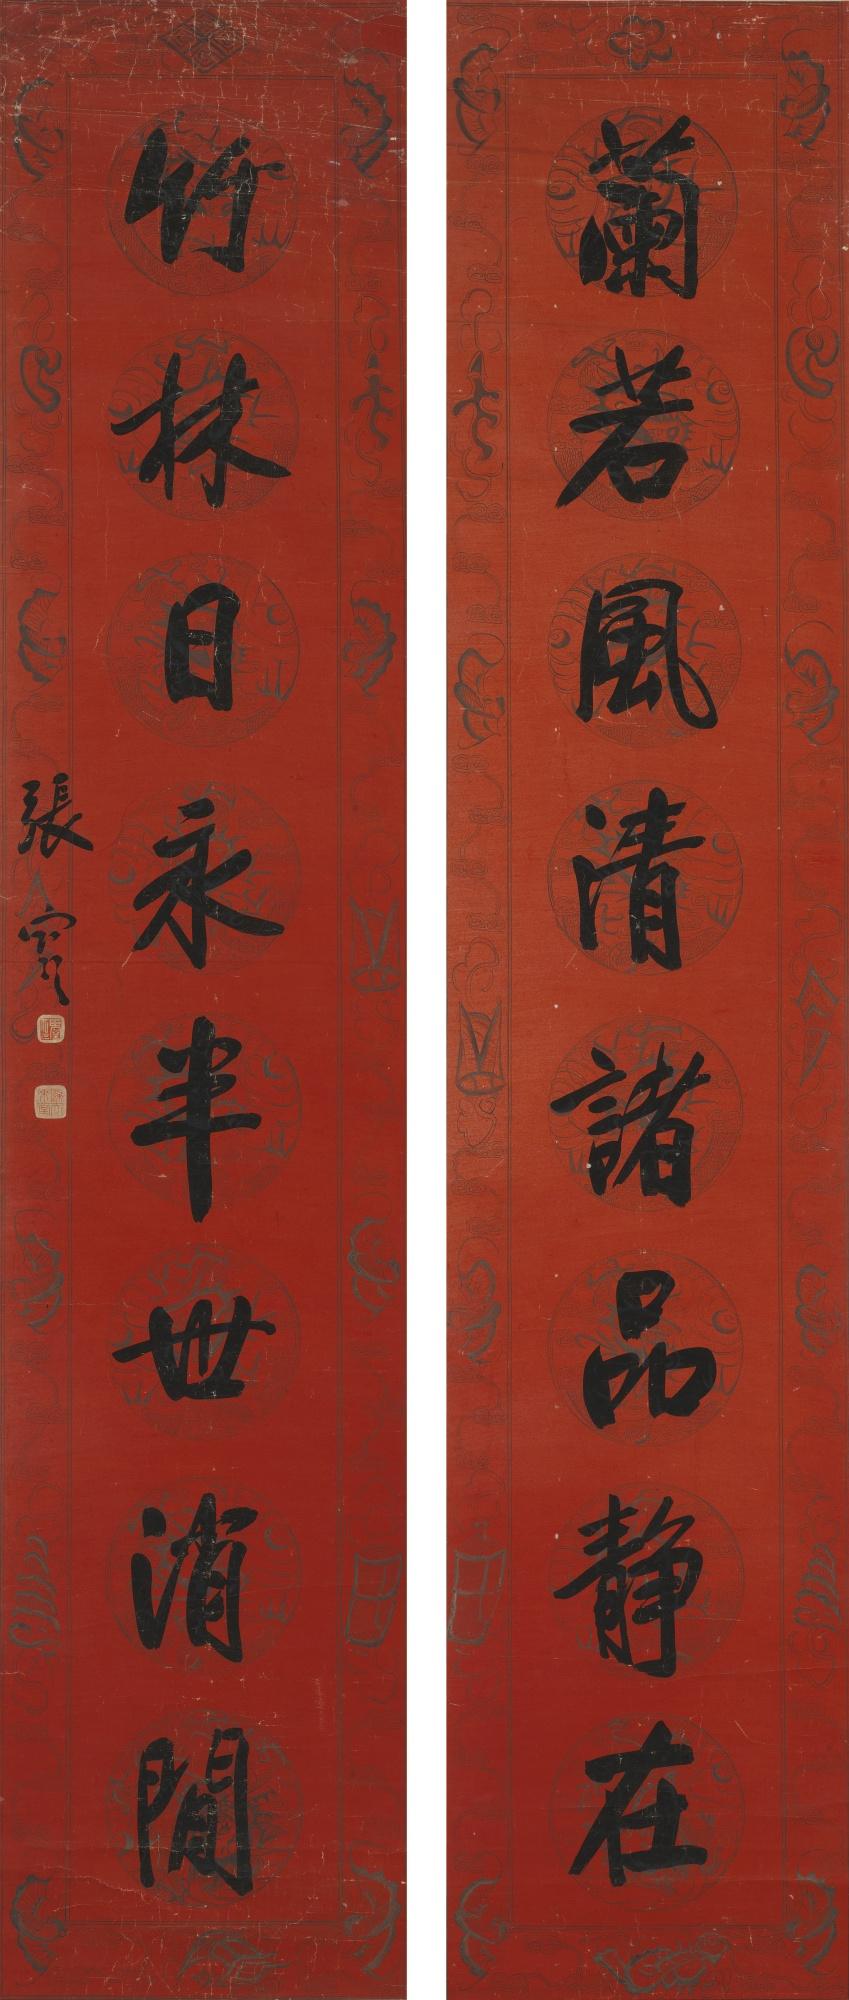 蘭若風清諸品靜在
竹林日永半世消閒
張寧